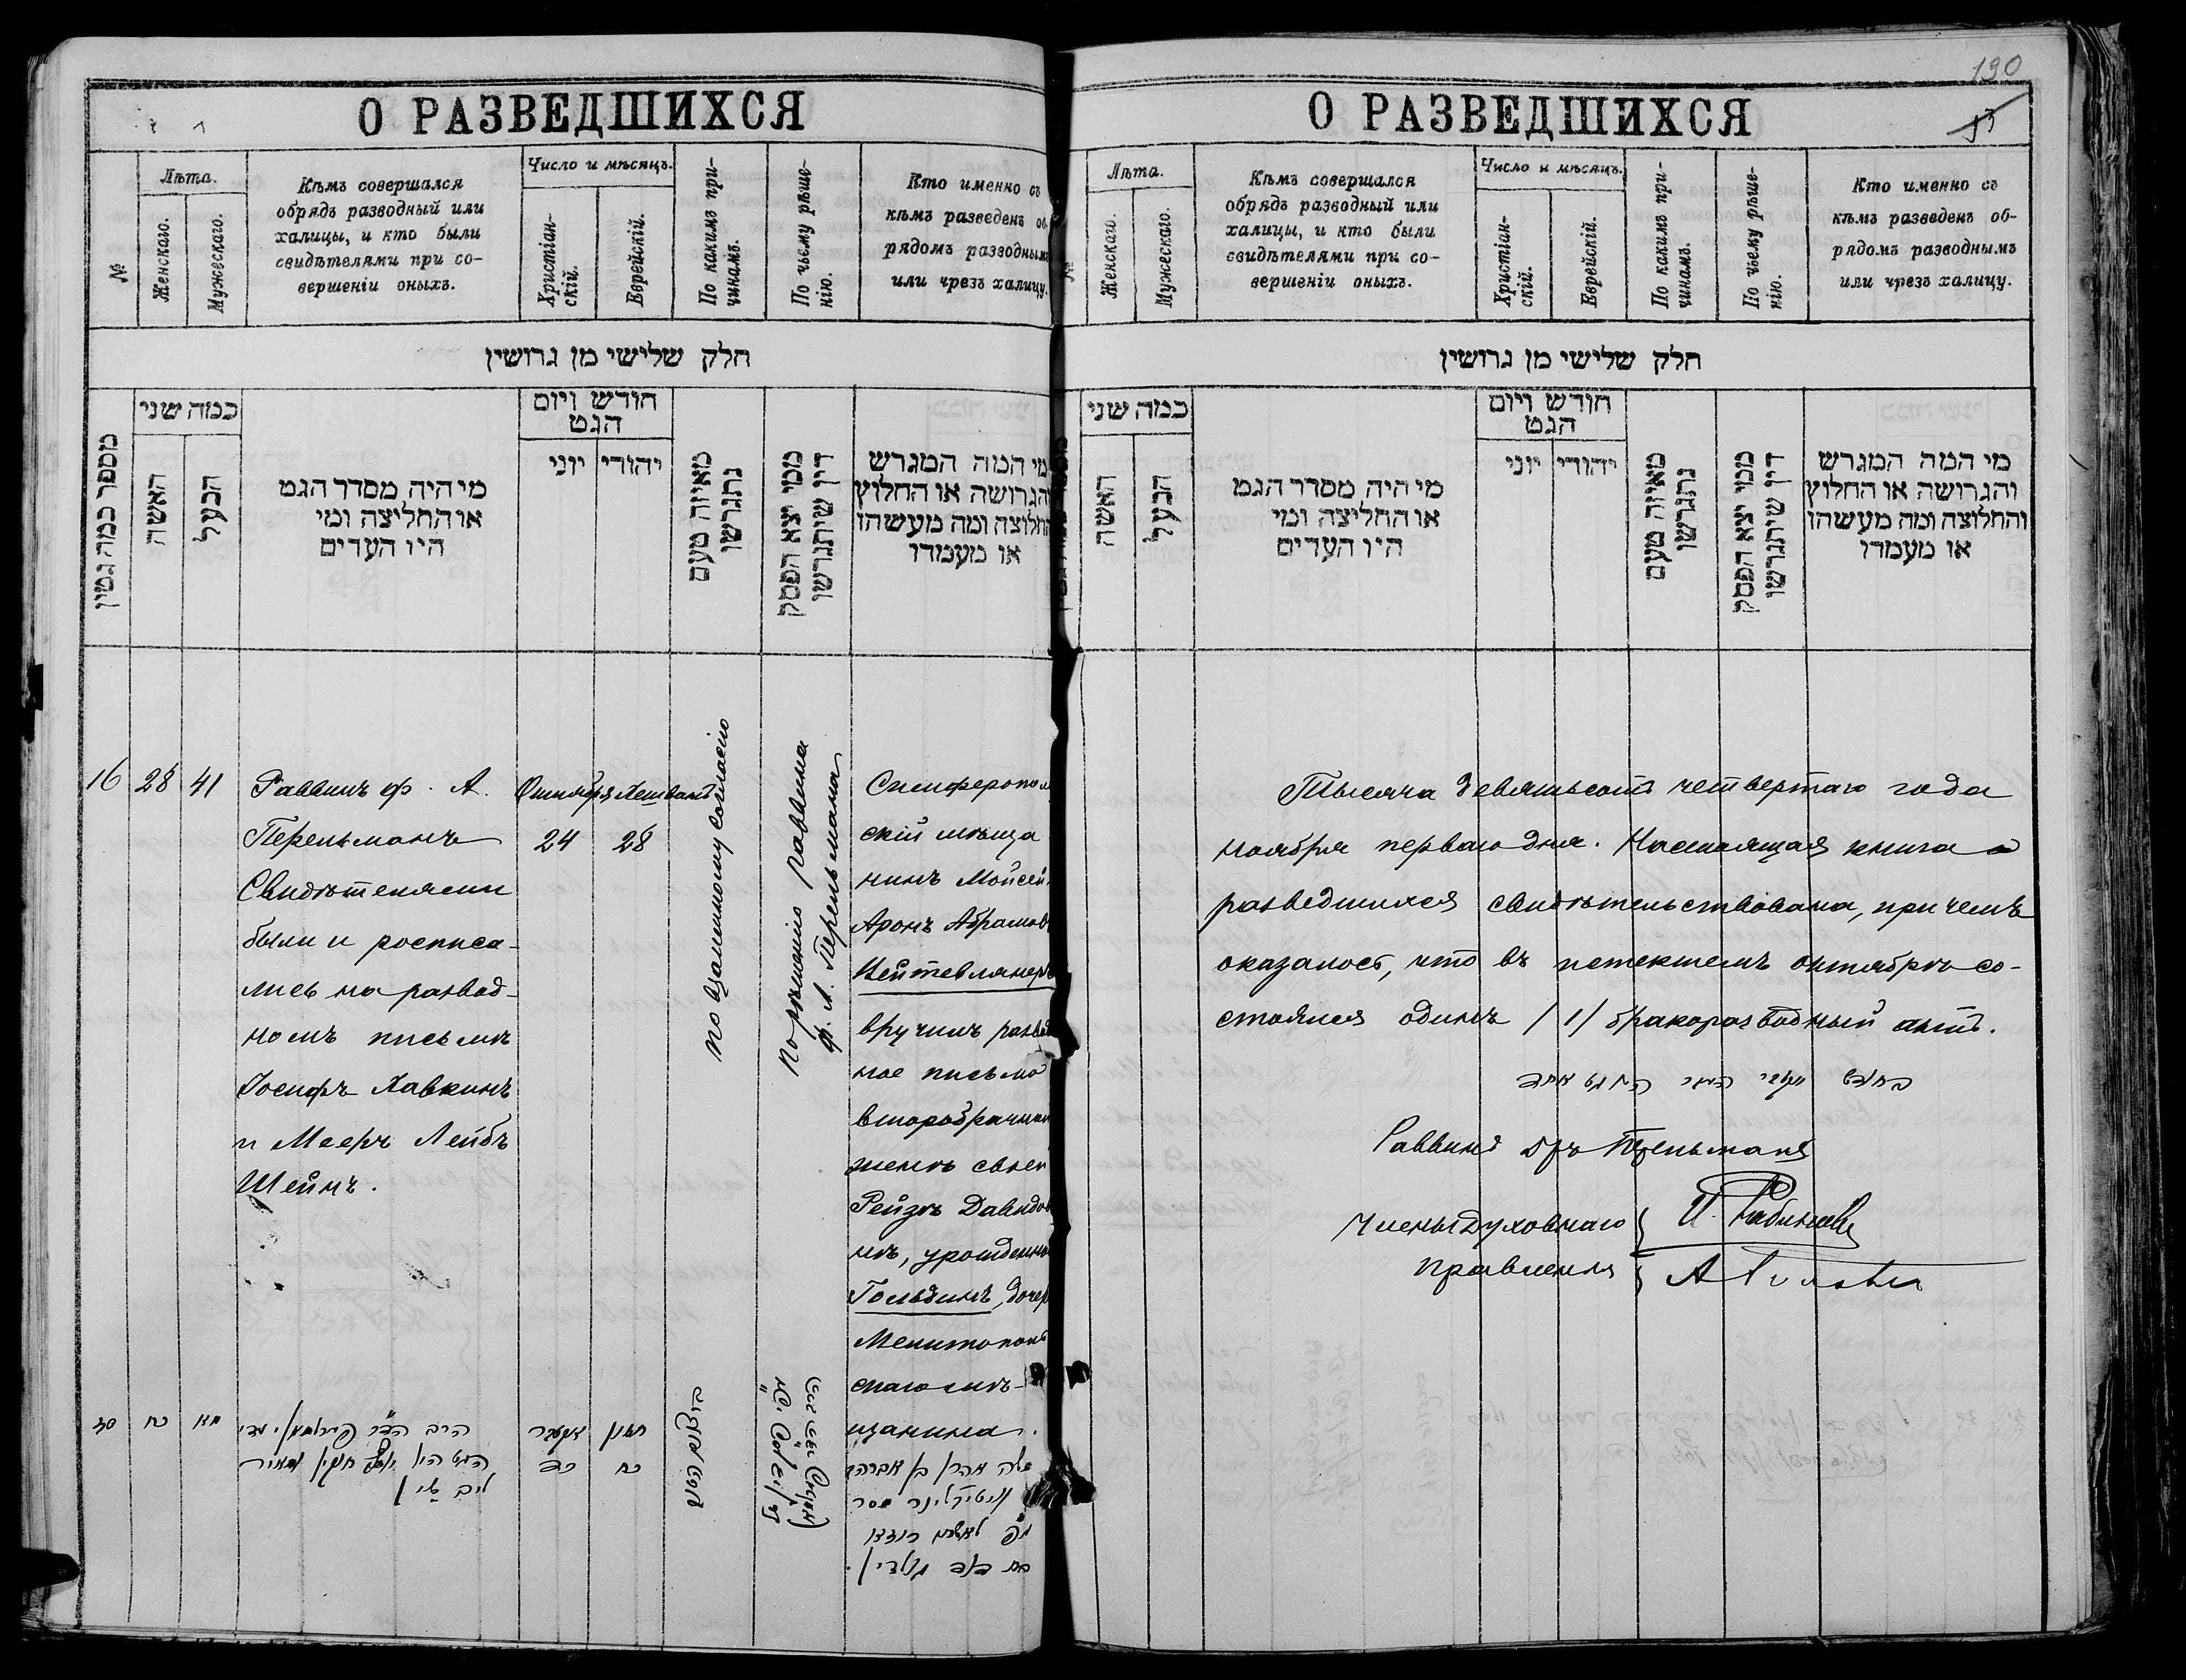 О РАЗВЕДШИХСЯ
№
Лѣта.
Женскаго.
Мужескаго.
Кѣмъ совершался
обрядъ разводный или
халицы, и кто были
свидѣтелями при со-
вершеніи оныхъ.
Число и мѣсяцъ.
Христіан-
скій.
Еврейскій.
По какимъ при-
чинамъ.
По чьему рѣше-
нію.
Кто именно съ
кѣмъ разведенъ об-
рядомъ разводнымъ
или чрезъ халицу.
חלק שלישי מן גרושין
מספר כמה גטין
כמה שני
האשה
הבעל
מי היה מסדר הגט
או החליצה ומי
היו העדים
חודש ויום
הגט
יוני
יהודי
מאיזה טעם
נתגרשו
ממי יצא הפסק
דין שיתגרשו
מי המה המגרש
והגרושה או החלוץ
והחלוצה ומה מעשהו
או מעמדו
16
28
41
Раввинъ ф. А.
Перельманъ
Свидѣтелями
были и росписа-
лись на развод-
номъ письмѣ
Іосифъ Хавкинъ
и Мееръ Лейбъ
Шейнъ.
Октября
24
Хешванъ
28
по взаимному согласію
По рѣшенію раввина
ф. А. Перельмана
Симферополь
скій мѣща
нинъ Мойсей
Аронъ Абрамов
вручилъ развод
ное письмо
второбрачной
женѣ своей
Рейзѣ Давидов
нѣ, урожденной
Гольдинъ, дочери
Мелитополь
скаго мѣ-
щанина.
כח
מא
חשון
כח
משה אהרן בן אברהם
בת דוד גאלדין.
190
О РАЗВЕДШИХСЯ
№
Лѣта.
Женскаго.
Мужескаго.
Кѣмъ совершался
обрядъ разводный или
халицы, и кто были
свидѣтелями при со-
вершеніи оныхъ.
Число и мѣсяцъ.
Христіан-
скій.
Еврейскій.
По какимъ при-
чинамъ.
По чьему рѣше-
нію.
Кто именно съ
кѣмъ разведенъ об-
рядомъ разводнымъ
или чрезъ халицу.
חלק שלישי מן גרושין
כמה שני
האשה
הבעל
מי היה מסדר הגט
או החליצה ומי
היו העדים
חודש ויום
הגט
יוני
יהודי
מאיזה טעם
נתגרשו
ממי יצא הפסק
דין שיתגרשו
מי המה המגרש
והגרושה או החלוץ
והחלוצה ומה מעשהו
או מעמדו
Тысяча девятьсотъ четвертаго года
ноября перваго дня. Настоящая книга о
разведшихся свидѣтельствована, при чемъ
оказалось, что въ истекшемъ октябрѣ со-
стоялся одинъ /1/ бракоразводный актъ.
Раввинъ Д-ръ Перельманъ
Члены духовнаго
правленія